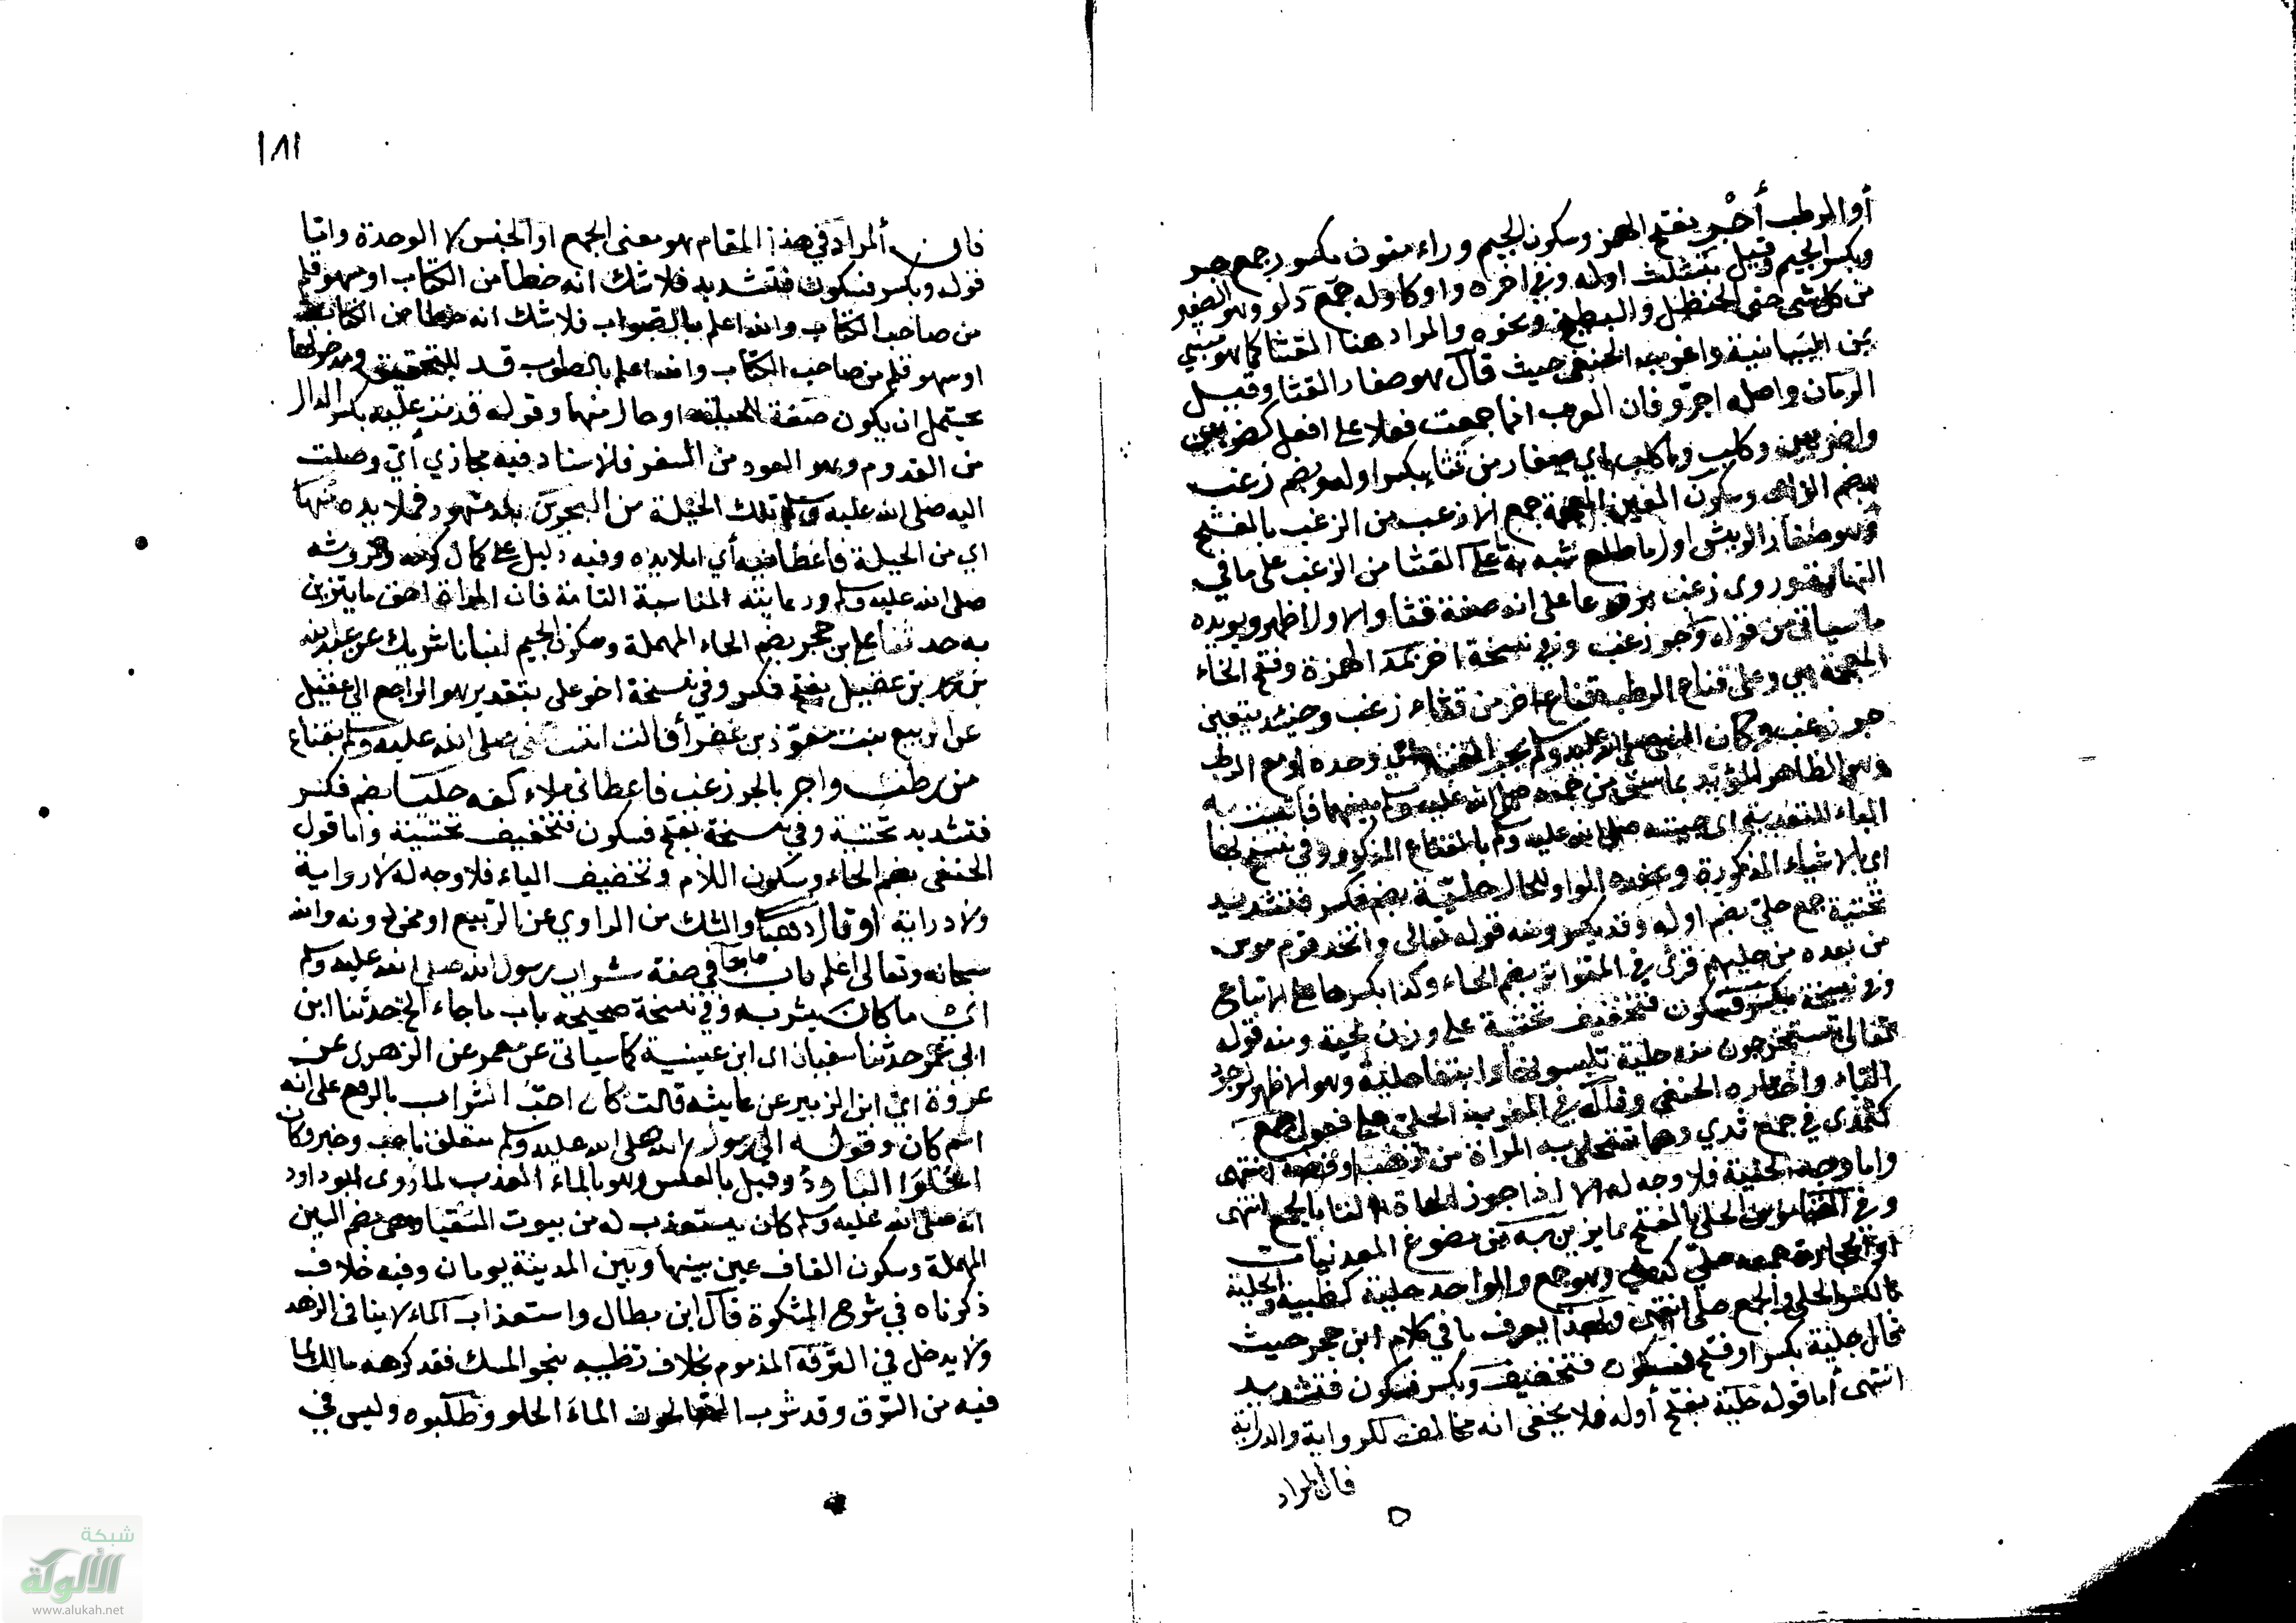 أو الرطب أجر بفتح الهمز وسكون الجيم وراء منون مكسور جمع جر
وبكسر الجيم وقيل بتثليث اوله وفي اخره واو كاوله جمع دلو وهو الصغير
من كل شيء حتى الحنظل والبطيخ ونحوه والمراد هنا القثا كما هو مبين
في واغرب الحنفي حيث قال هو صغار القثا وقيل
الرمان واصله اجرو فان العرب انما جمعت فعلا على افعل كضرس
واضرس وكلب واكلب اي صغار من قثاء بكسر اوله ويضم زغب
بضم الزاي وسكون الغين المعجمة جمع الازغب من الزغب بالفتح
وهو صغار الريش اول ما طلع شبه به على القثا من الزغب على ما في
النهاية وروى زغب مرفوعا على انه صفة قثا والاول اظهر ويؤيده
ما سيأتي من قوله واجر زغب وفي نسخة اخر بمد الهمزة وفتح الخاء
المعجمة اي وعلى قناع الرطب قناع اخر من قثاء زغب وحينئذ يتعين
جر زغب وكان النبي صلى الله عليه وسلم يحب القثاء اي وحده او مع الرطب
وهو الظاهر المؤيد بما سبق من جمعه صلى الله عليه وسلم بينهما فأتيته به
الباء للتعدية اي جيته صلى الله عليه وسلم بالقناع المذكور وفي نسخ بها
اي بالاشياء المذكورة وعنده الواو للحال حلية بضم فكسر فتشديد
تحتية جمع حلي بضم اوله وقد يكسر ومنه قوله تعالى واتخذ قوم موسى
من بعده من حليهم قرئ في المتواتر بضم الحاء وكذا بكسرها على الاتباع
وفي نسخة بكسر فسكون فتخفيف تحتية على وزن لحية ومنه قوله
تعالى تستخرجون منه حلية تلبسونها وابتغاء حلية وهو الاظهر لوجود
التاء واختاره الحنفي وقال في المغرب الحلي على فعول جمع
كثدي في جمع ثدي وهي ما تتحلى به المرأة من ذهب او فضة انتهى
واما وجه الحلية فلا وجه له الا اذا جوز الحاق التا بالجمع انتهى
وفي القاموس الحلي بالفتح ما يزين به من مصوغ المعدنيات
او الحجارة جمعه حلي كدلي وهو جمع والواحد حلية كظبية والحلية
بالكسر الحلي والجمع حلى انتهى وبهذا يعرف ما في كلام ابن حجر حيث
قال حلية بكسر او فتح فسكون فتخفيف وبكسر فسكون فتشديد
انتهى أما قوله حلية بفتح أوله فلا يخفى انه مخالف للرواية والدراية
فان المراد
١٨١
فان المراد في هذا المقام هو معنى الجمع او الجنس لا الوحدة واما
قوله وبكسر فسكون فتشديد فلا شك انه خطأ من الكتاب او سهو قلم
من صاحب الكتاب والله اعلم بالصواب فلا شك انه خطا من الكتاب
او سهو قلم من صاحب الكتاب والله اعلم بالصواب قد للتحقيق ومدخولها
يحتمل ان يكون صفة الحلية او حال منها وقوله قدمت عليه بكسر الدال
من القدوم وهو العود من السفر فالاسناد فيه مجازي أي وصلت
اليه صلى الله عليه وسلم تلك الحلية من البحرين بلد مشهور فملا يده منها
اي من الحلية فاعطانيه أي املا يده وفيه دليل على كمال كرمه ومروءته
صلى الله عليه وسلم ورعايته المناسبة التامة فان المراة احق ما يتزين
به حدثنا علي بن حجر بضم الحاء المهملة وسكون الجيم انبأنا شريك عن عبد الله
بن محمد بن عقيل بفتح فكسر وفي نسخة اخو على بتقدير هو الراجع الى عقيل
عن الربيع بنت معوذ بن عفرأ قالت اتيت النبي صلى الله عليه وسلم بقناع
من رطب واجر بالجر زغب فاعطاني ملاء كفه حليا بضم فكسر
فتشديد تحتية وفي نسخة بفتح فسكون فتخفيف تحتية واما قول
الحنفي بضم الحاء وسكون اللام وتخفيف الياء فلا وجه له لا رواية
ولا دراية او قال ذهبا والشك من الراوي عن الربيع او ممن دونه والله
سبحانه وتعالى اعلم باب ما جاء في صفة شراب رسول الله صلى الله عليه وسلم
اي ما كان يشربه وفي نسخة صحيحة باب ما جاء الخ حدثنا ابن
ابي عمر حدثنا سفيان اي ابن عيينة كما سياتي عن معمر عن الزهري عن
عروة اي ابن الزبير عن عايشة قالت كان احب الشراب بالرفع على انه
اسم كان وقوله الى رسول الله صلى الله عليه وسلم متعلق باحب وخبر كان
الحلو البارد وقيل بالعكس وهو بالماء العذب لما روى ابو داود
انه صلى الله عليه وسلم كان يستعذب له من بيوت السقيا وهي بضم السين
المهملة وسكون القاف عين بينها وبين المدينة يومان وفيه خلاف
ذكرناه في شرح المشكوة قال ابن بطال واستعذاب الماء لا ينافى الزهد
ولا يدخل في الترفه المذموم بخلاف تطييبه بنحو المسك فقد كرهه مالك لما
فيه من السرف وقد شرب الصالحون الماء الحلو وطلبوه وليس في
شبكة
الألوكة
www.alukah.net